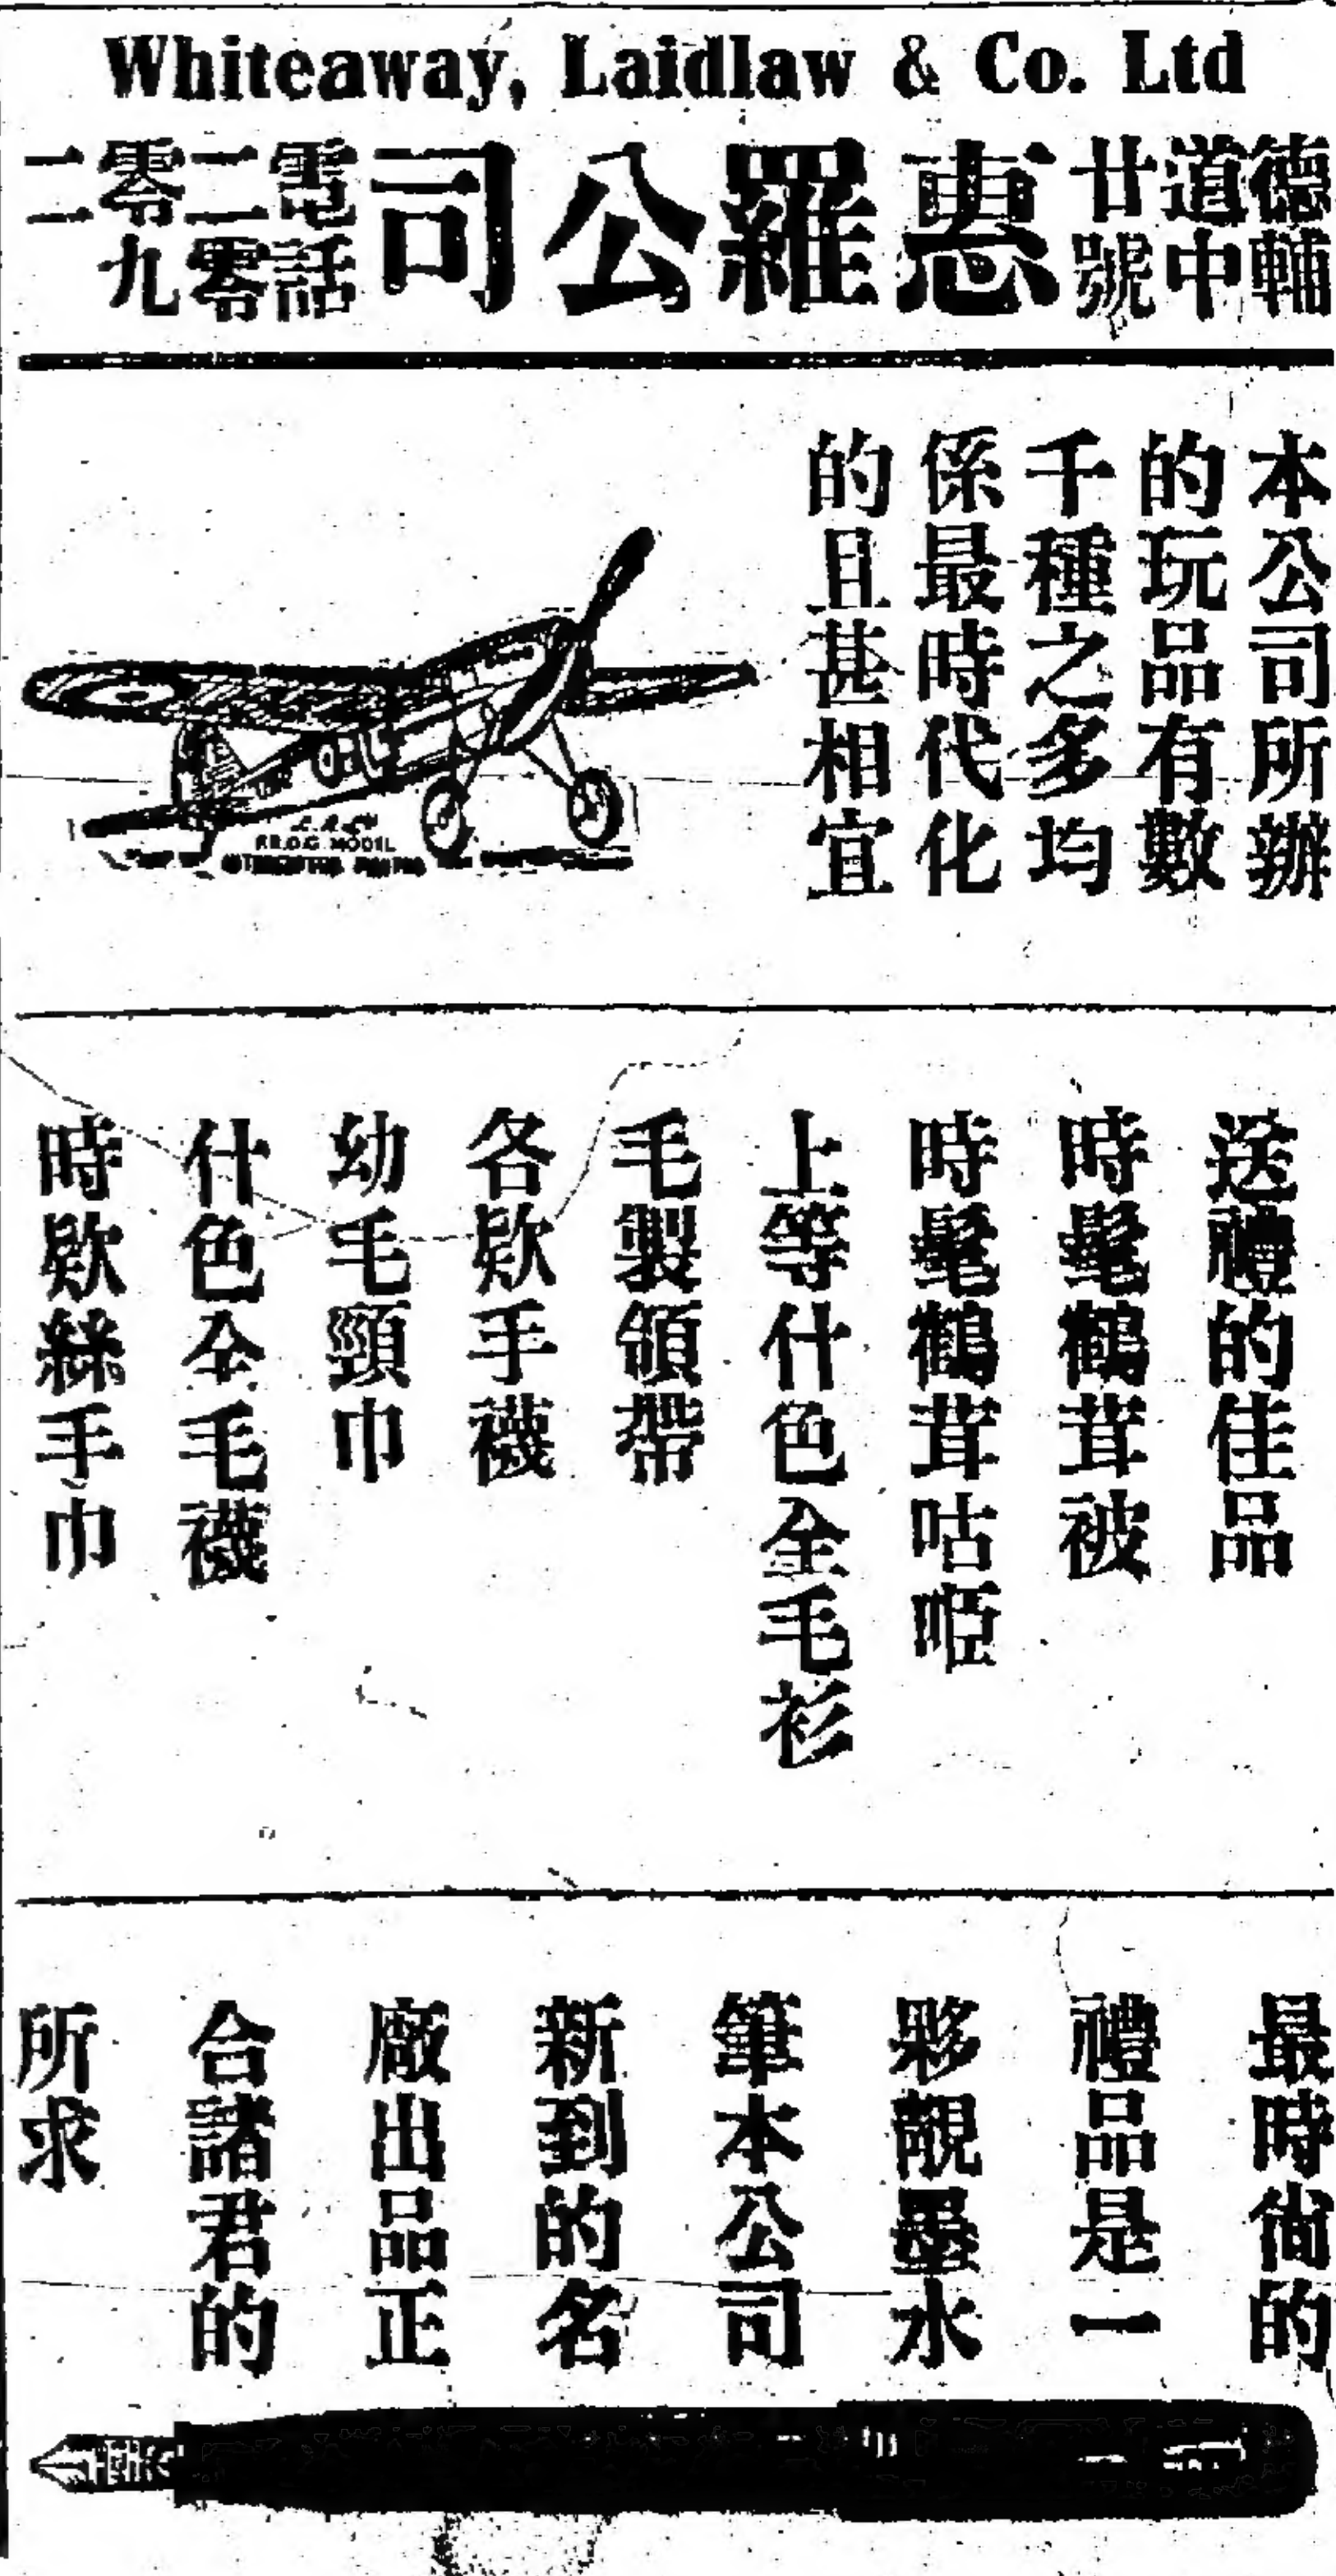 Whiteaway, Laidlaw & Co. Ltd
德輔
道中
廿號
惠羅公司
電話
二零
零九
二
本公司所辦
的玩品有數
千種之多均
係最時代化
的且甚相宜
F.R.O.G. MODEL
INTERCEPTOR FIGHTER
送禮的佳品
時髦鶴茸被
時髦鶴茸咕
上等什色全毛衫
毛製領帶
各欵手襪
幼毛頸巾
什色全毛襪
時欵絲手巾
最時尙的
禮品是一
夥靚墨水
筆本公司
新到的名
廠出品正
合諸君的
所求